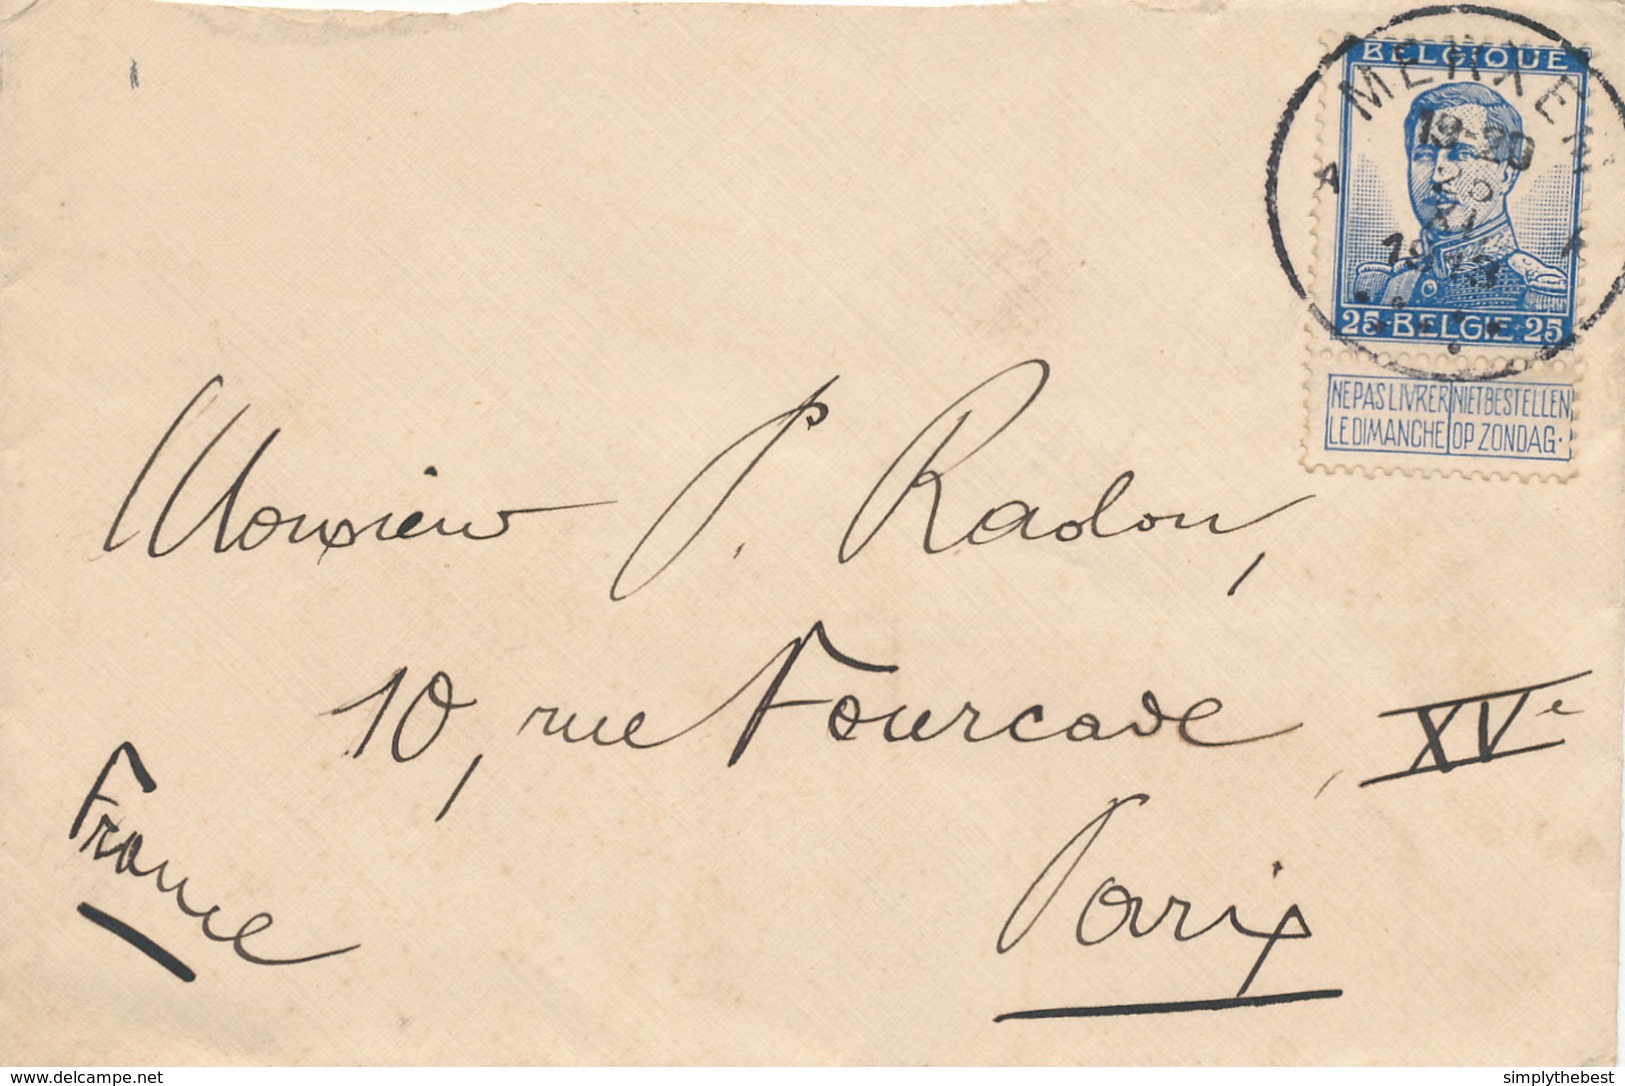 BELGIQUE
MERXEM
19-20
25
XI
1913
A A
25 BELGIE 25
NE PAS LIVRER NIET BESTELLEN
LE DIMANCHE OP ZONDAG.
Monsieur P. Radon,
10, rue Fourcade, XVe
Paris
France
www.delcampe.net
simplythebest